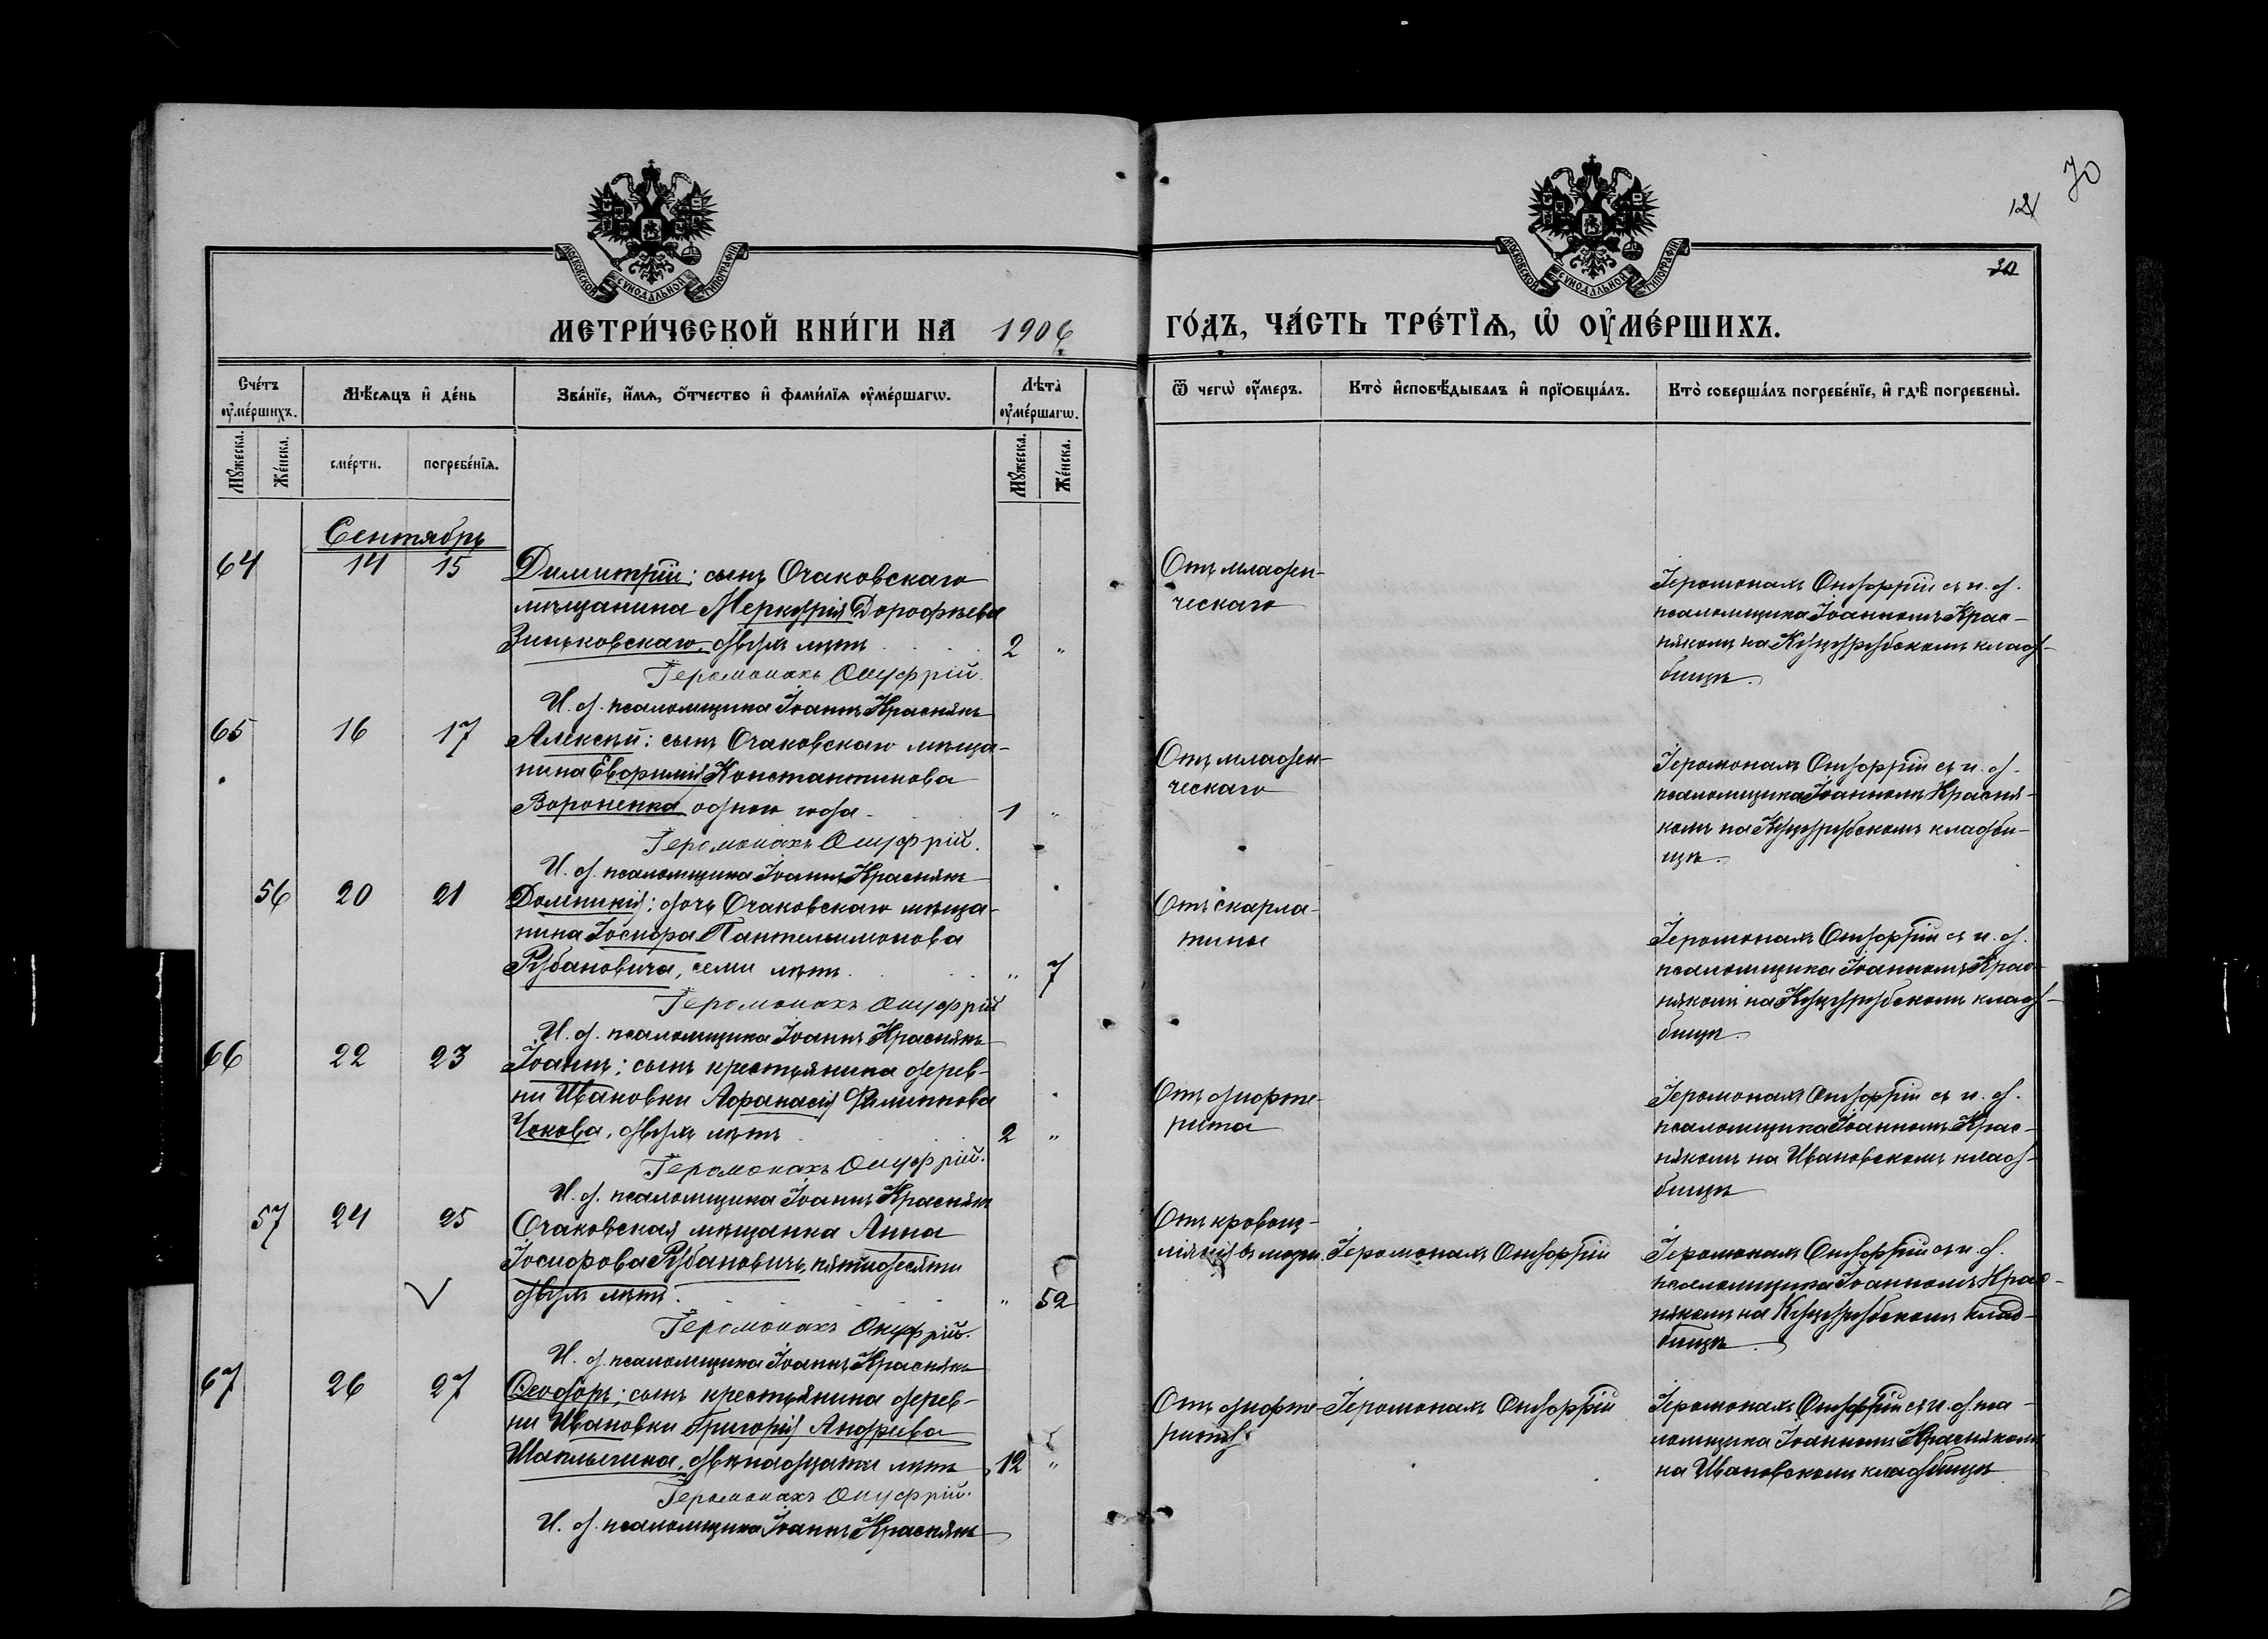 70
121
32
МОСКОВСКОЙ СѴНОДАЛЬНОЙ ТИПОГРАФІИ
МОСКОВСКОЙ СѴНОДАЛЬНОЙ ТИПОГРАФІИ
МЕТРИ́ЧЕСКОЙ КНИ́ГИ НА 1906 ГО́ДЪ, ЧА́СТЬ ТРЕ́ТЇѦ, Ѡ҆ ОУ҆МЕ́РШИХЪ.
Сче́тъ оу҆ме́ршихъ.
Мѣ́сѧцъ и҆ де́нь
Зва́нїе, и҆́мѧ, о҆́тчество и҆ фами́лїѧ оу҆ме́ршагѡ.
Лѣ́та оу҆ме́ршагѡ.
Ѿ чегѡ̀ оу҆́меръ.
Кто̀ и҆сповѣ́дывалъ и҆ прїобща́лъ.
Кто̀ соверша́лъ погребе́нїе, и҆ гдѣ̀ погребены̀.
Мꙋ́жеска.
Же́нска.
сме́рти.
погребе́нїѧ.
Мꙋ́жеска.
Же́нска.
Сентябрь
64 14 15 Димитрій; сынъ Очаковскаго
мѣщанина Меркурія Дорофѣева
Зиньковскаго, двухъ лѣтъ 2 "
Іеромонахъ Онуфрій.
И. д. псаломщика Іоаннъ Краснякъ
Отъ младен-
ческаго
Іеромонахъ Онуфрій съ и. д.
псаломщика Іоанномъ Крас-
някомъ на Куцурубскомъ клад-
бищѣ.
65 16 17 Алексѣй; сынъ Очаковскаго мѣща-
нина Евфимія Константинова
Вороненка, одного года 1 "
Іеромонахъ Онуфрій.
И. д. псаломщика Іоаннъ Краснякъ
Отъ младен-
ческаго
Іеромонахъ Онуфрій съ и. д.
псаломщика Іоанномъ Красня-
комъ на Куцурубскомъ кладби-
щѣ.
56 20 21 Домникія; дочь Очаковскаго мѣща-
нина Іосифа Пантелеимонова
Рубановича, семи лѣтъ " 7
Іеромонахъ Онуфрій
И. д. псаломщика Іоаннъ Краснякъ
Отъ скарла-
тины
Іеромонахъ Онуфрій съ и. д.
псаломщика Іоанномъ Крас-
някомъ на Куцурубскомъ клад-
бищѣ.
66 22 23 Іоаннъ; сынъ крестьянина дерев-
ни Ивановки Афанасія Филиппова
Чокова, двухъ лѣтъ 2 "
Іеромонахъ Онуфрій.
И. д. псаломщика Іоаннъ Краснякъ
Отъ дифте-
рита
Іеромонахъ Онуфрій съ и. д.
псаломщика Іоанномъ Крас-
някомъ на Ивановскомъ клад-
бищѣ
57 24 25 Очаковская мѣщанка Анна
Іосифова Рубановичъ, пятидесяти
двухъ лѣтъ. " 52
Іеромонахъ Онуфрій.
И. д. псаломщика Іоаннъ Краснякъ
Отъ кровоиз-
ліянія въ мозгъ. Іеромонахъ Онуфрій
Іеромонахъ Онуфрій съ и. д.
псаломщика Іоанномъ Крас-
някомъ на Куцурубскомъ клад-
бищѣ
67 26 27 Ѳеодоръ; сынъ крестьянина дерев-
ни Ивановки Григорія Андреева
Шаплыгина, двѣнадцати лѣтъ 12 "
Іеромонахъ Онуфрій.
И. д. псаломщика Іоаннъ Краснякъ
Отъ дифте- Іеромонахъ Онуфрій
Іеромонахъ Онуфрій съ и. д. пса-
ломщика Іоанномъ Краснякомъ
на Ивановскомъ кладбищѣ